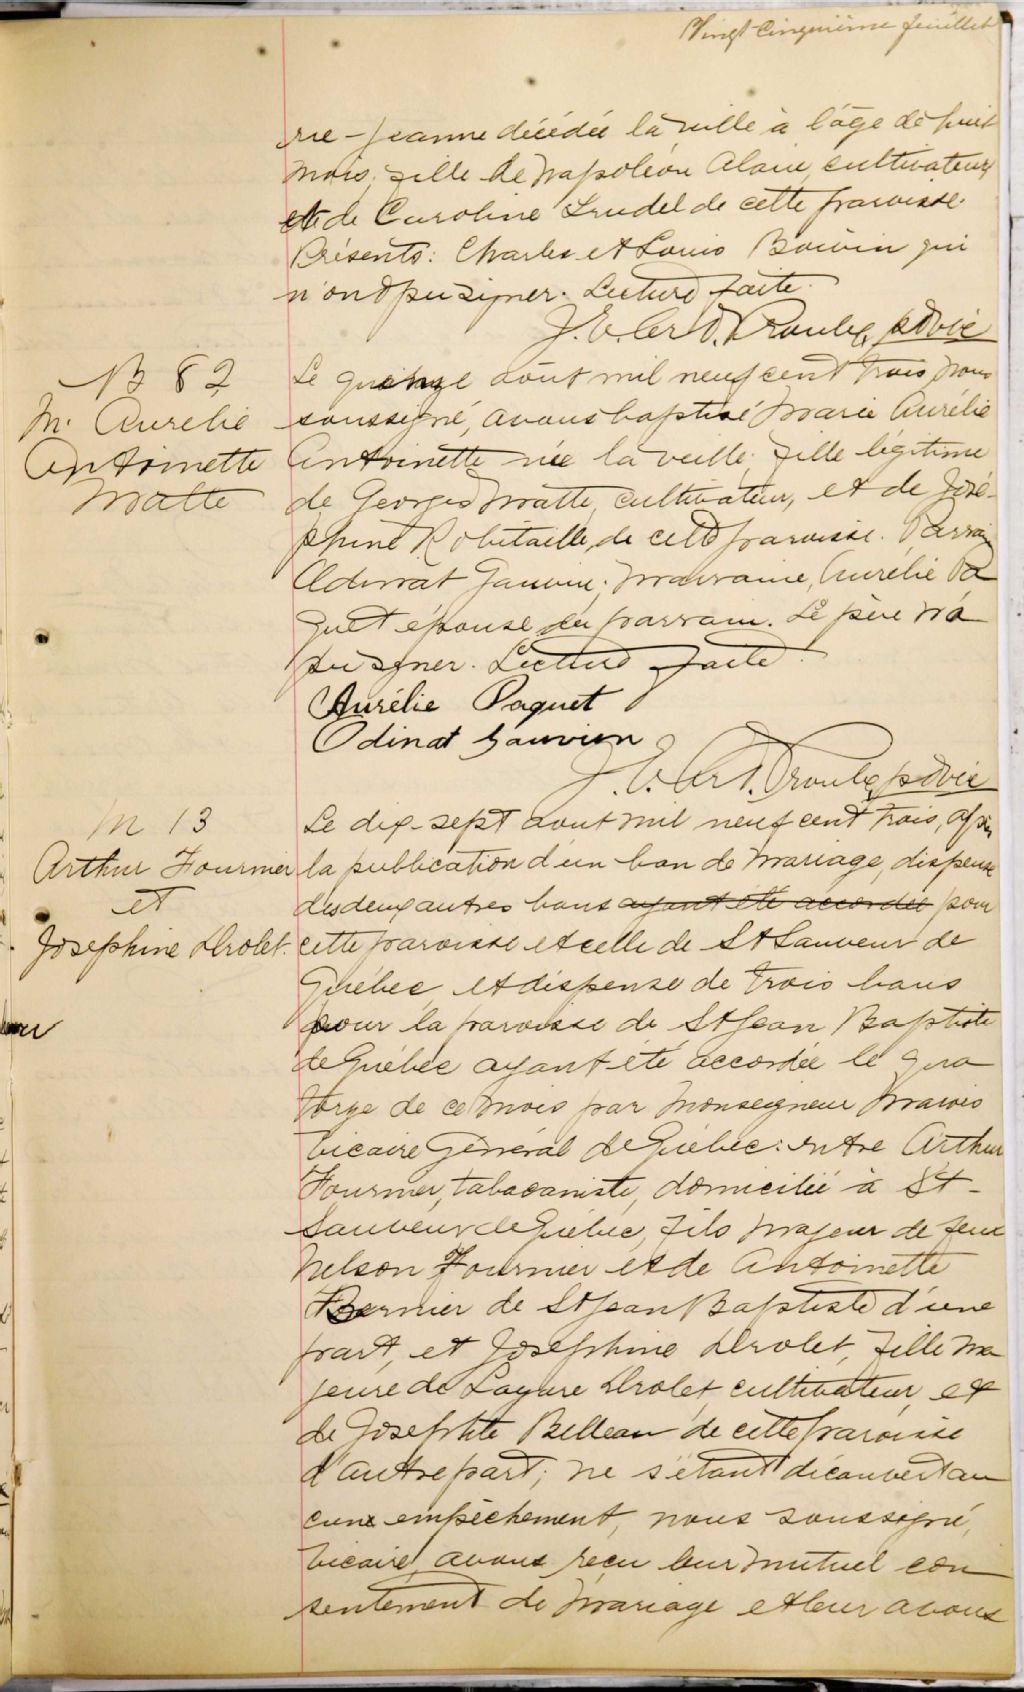 Vingt Cinquième feuillet
rie-Jeanne décédée la veille à l'âge de huit
mois, fille de Napoléon Alain, cultivateur,
et de Caroline Trudel de cette paroisse.
Présents: Charles et Louis Boivin qui
n'ont pu signer. Lecture faite.
J. E. Prouly, ptre vic
B 82
M. Aurélie
Antoinette
Matte
Le quinze août mil neuf cent trois, nous
soussigné, avons baptisé Marie Aurélie
Antoinette née la veille, fille légitime
de Georges Matte, cultivateur, et de José-
phine Robitaille, de cette paroisse. Parrain
Odinat Gauvin; marraine, Aurélie Pa
quet épouse du parrain. Le père n'a
pu signer. Lecture faite.
Aurélie Paquet
Odinat Gauvin
J. E. Prouly, ptre vic
M 13
Arthur Fournier
et
Josephine Drolet.
Le dix-sept août mil neuf cent trois, après
la publication d'un ban de mariage, dispense
des deux autres bans ayant été accordée pour
cette paroisse et celle de St Sauveur de
Québec, et dispense de trois bans
pour la paroisse de St Jean Baptiste
de Québec ayant été accordée le qua
torze de ce mois par Monseigneur Marois
Vicaire Général de Québec: entre Arthur
Fournier, tabaconiste, domicilié à St-
Sauveur de Québec, fils majeur de feu
Nelson Fournier et de Antoinette
Bernier de St Jean Baptiste d'une
part, et Josephine Drolet, fille ma
jeure de Lazare Drolet, cultivateur, et
de Josephte Belleau de cette paroisse
d'autre part; ne s'étant découvert au
cun empêchement, nous soussigné,
Vicaire, avons reçu leur mutuel con
sentement de mariage et leur avons